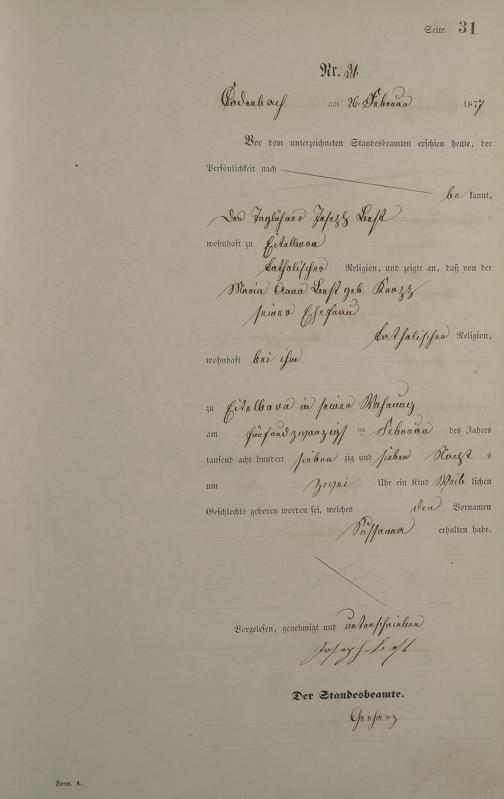 Seite 31
Nr. 31.
Cadenbach am 26. Februar 1877
Vor dem unterzeichneten Standesbeamten erschien heute, der
Persönlichkeit nach
be kannt,
der Taglöhner Joseph
wohnhaft zu Eitelborn
katholischer Religion, und zeigte an, daß von der
Maria Anna geb.
seiner Ehefrau
katholischer Religion,
wohnhaft bei ihm
zu Eitelborn in seiner Wohnung
am fünfundzwanzigst en Februar des Jahres
tausend acht hundert sieben zig und sieben Nacht s
um zwei Uhr ein Kind Weib lichen
Geschlechts geboren worden sei, welches den Vornamen
Sussanna erhalten habe.
Vorgelesen, genehmigt und unterschrieben
Joseph
Der Standesbeamte.
Gerharz
Form. A.